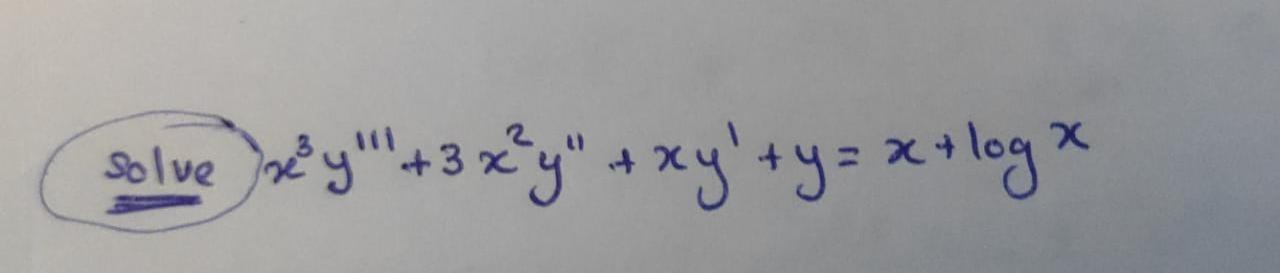 solve x³y''' + 3x²y'' + xy' + y = x + log x